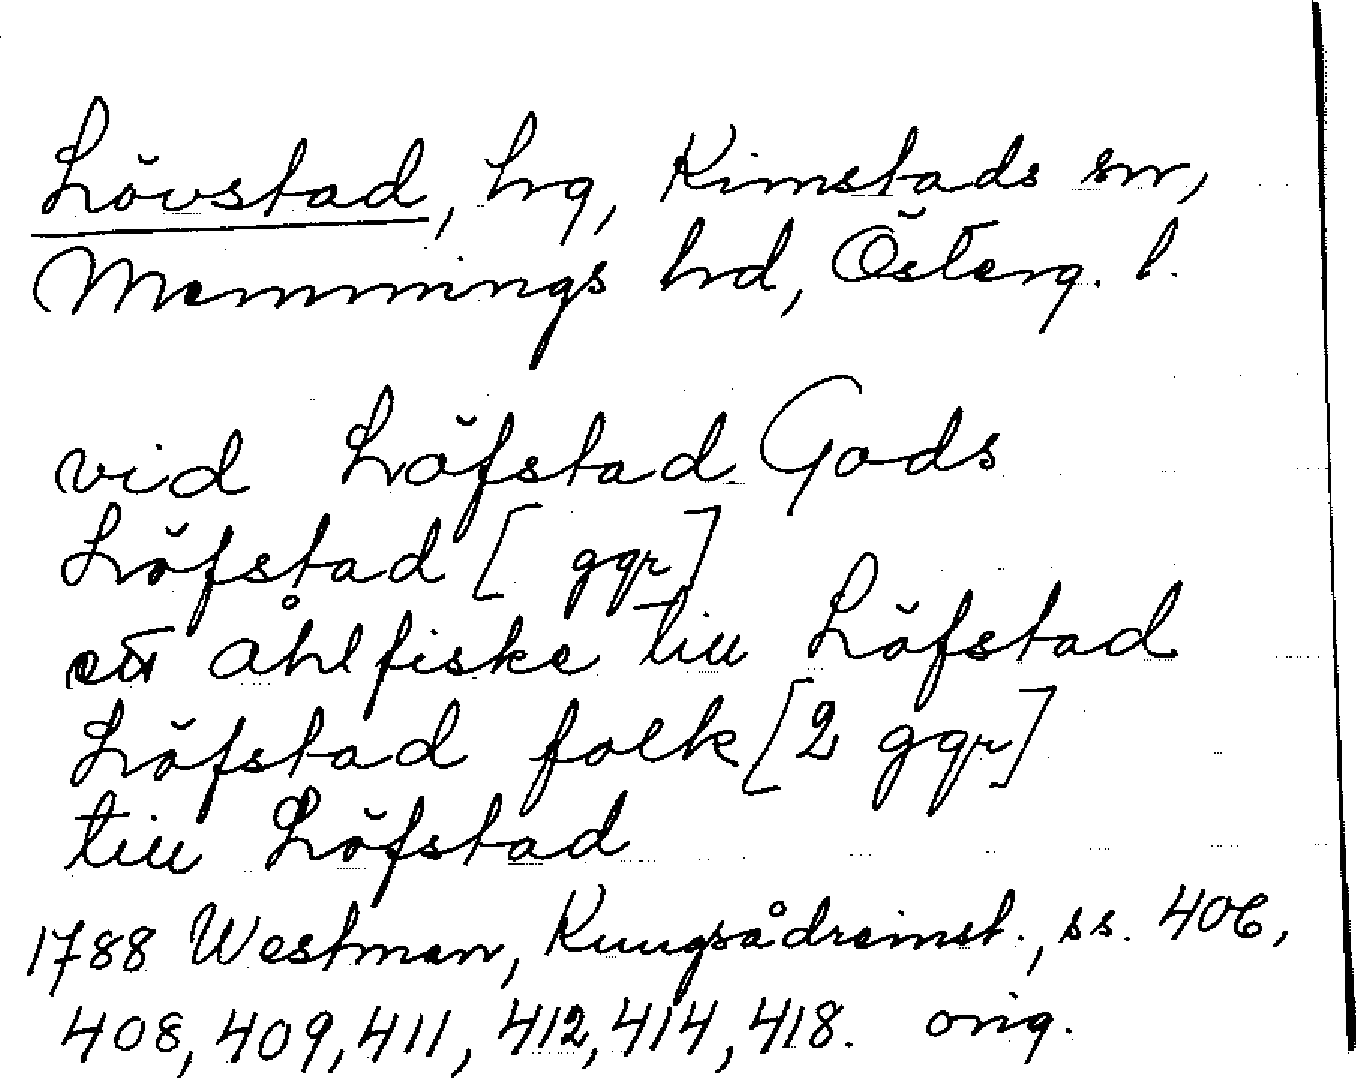 Lövstad, hrg, Kimstads sn,
Memmings hrd, Österg. l.
vid Löfstad Gods
Löfstad [ ggr]
ett åhlfiske till Löfstad
Löfstad folk [2 ggr]
till Löfstad
1788 Westman, Kungsådreinst., ss. 406,
408, 409, 411, 412, 414, 418. orig.